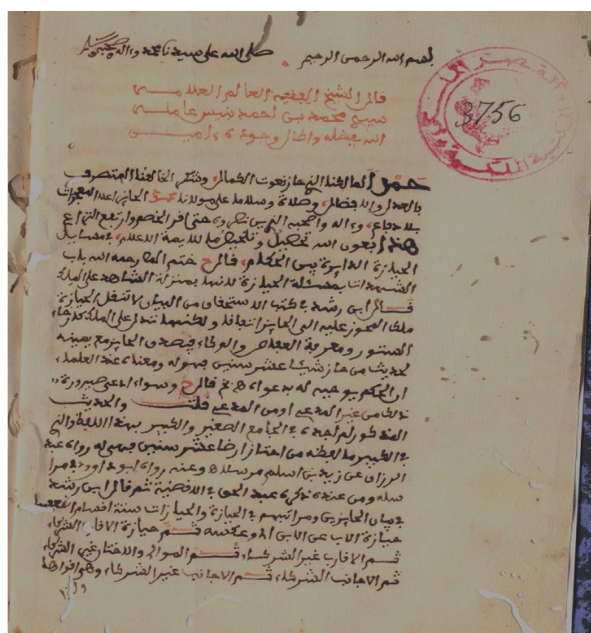 بسم الله الرحمن الرحيم صلى الله على سيدنا محمد وءاله وصحبه
3756
قال الشيخ الفقيه العالم العلامة
سيدي محمد بن احمد
الله بفضله
حمدا لمالكنا الذي حاز نعوت الكمال وشكرا لخالقنا المتصرف
بالعدل والافضال وصلاة وسلاما على مولانا محمد الحائز اعلا
بلا دفاع وءاله واصحابه الذين
هذا بعون الله تحصيل الايمة الاعلام في مسايل
الحيازة الدايرة بين الحكام قال ح ختم المص رحمه الله باب
الشهادات بمسئلة الحيازة لانها بمنزلة الشاهد على الملك
قال ابن رشد في كتاب الاستحقاق من البيان لا تنقل الحيازة
ملك المحوز عليه الى الحائز اتفاقا ولكنها تدل على الملك كارخاء
الستور ومعرفة العفاص والوكاء فيصدق الحائز مع يمينه
لحديث من حاز شيئا عشر سنين فهو له ومعناه عند العلماء
ان الحكم يوجبه له بدعواه قال ح وسواء ادعى صيرورة
ذلك من غير المدعي او من المدعي قلت والحديث
المذكور لم اجده في الجامع الصغير والكبير بهذا اللفظ والذي
في الكبير ما لفظه من احتاز ارضا عشر سنين فهي له رواه عبد
الرزاق عن زيد بن اسلم مرسلا وعنه رواه ابو داوود في مرا
سله ومن عنده ذكره عبد الحق في الاقضية ثم قال ابن رشد
في بيان الحائزين ومراتبهم في الحيازة والحيازات ستة اقسام
حيازة الاب عن الابن او عكسه ثم حيازة الاقارب الشركاء
ثم الاقارب غير الشركاء ثم الموالي والاختان غير الشركاء
ثم الاجانب الشركاء ثم الاجانب غير الشركاء وهي اقواها